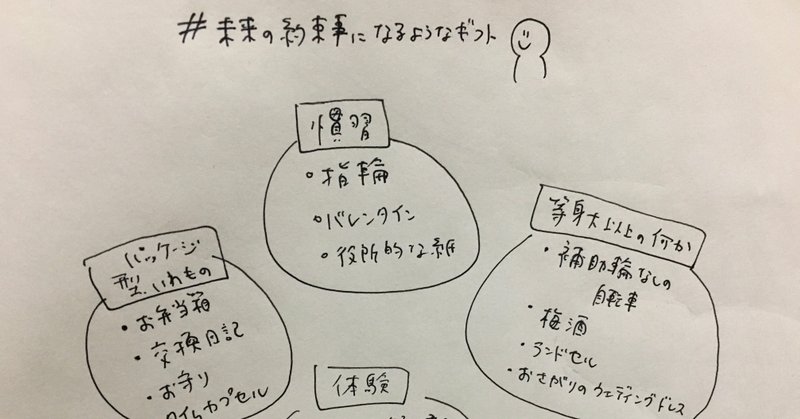 #未来の約束事になるようなギフト
慣習
・指輪
・バレンタイン
・役所的な紙
パッケージ
型、いれもの
・お弁当箱
・交換日記
・お守り
タイムカプセル
等身大以上の何か
・補助輪なしの
自転車
・梅酒
・ランドセル
・おさがりのウェディングドレス
体験